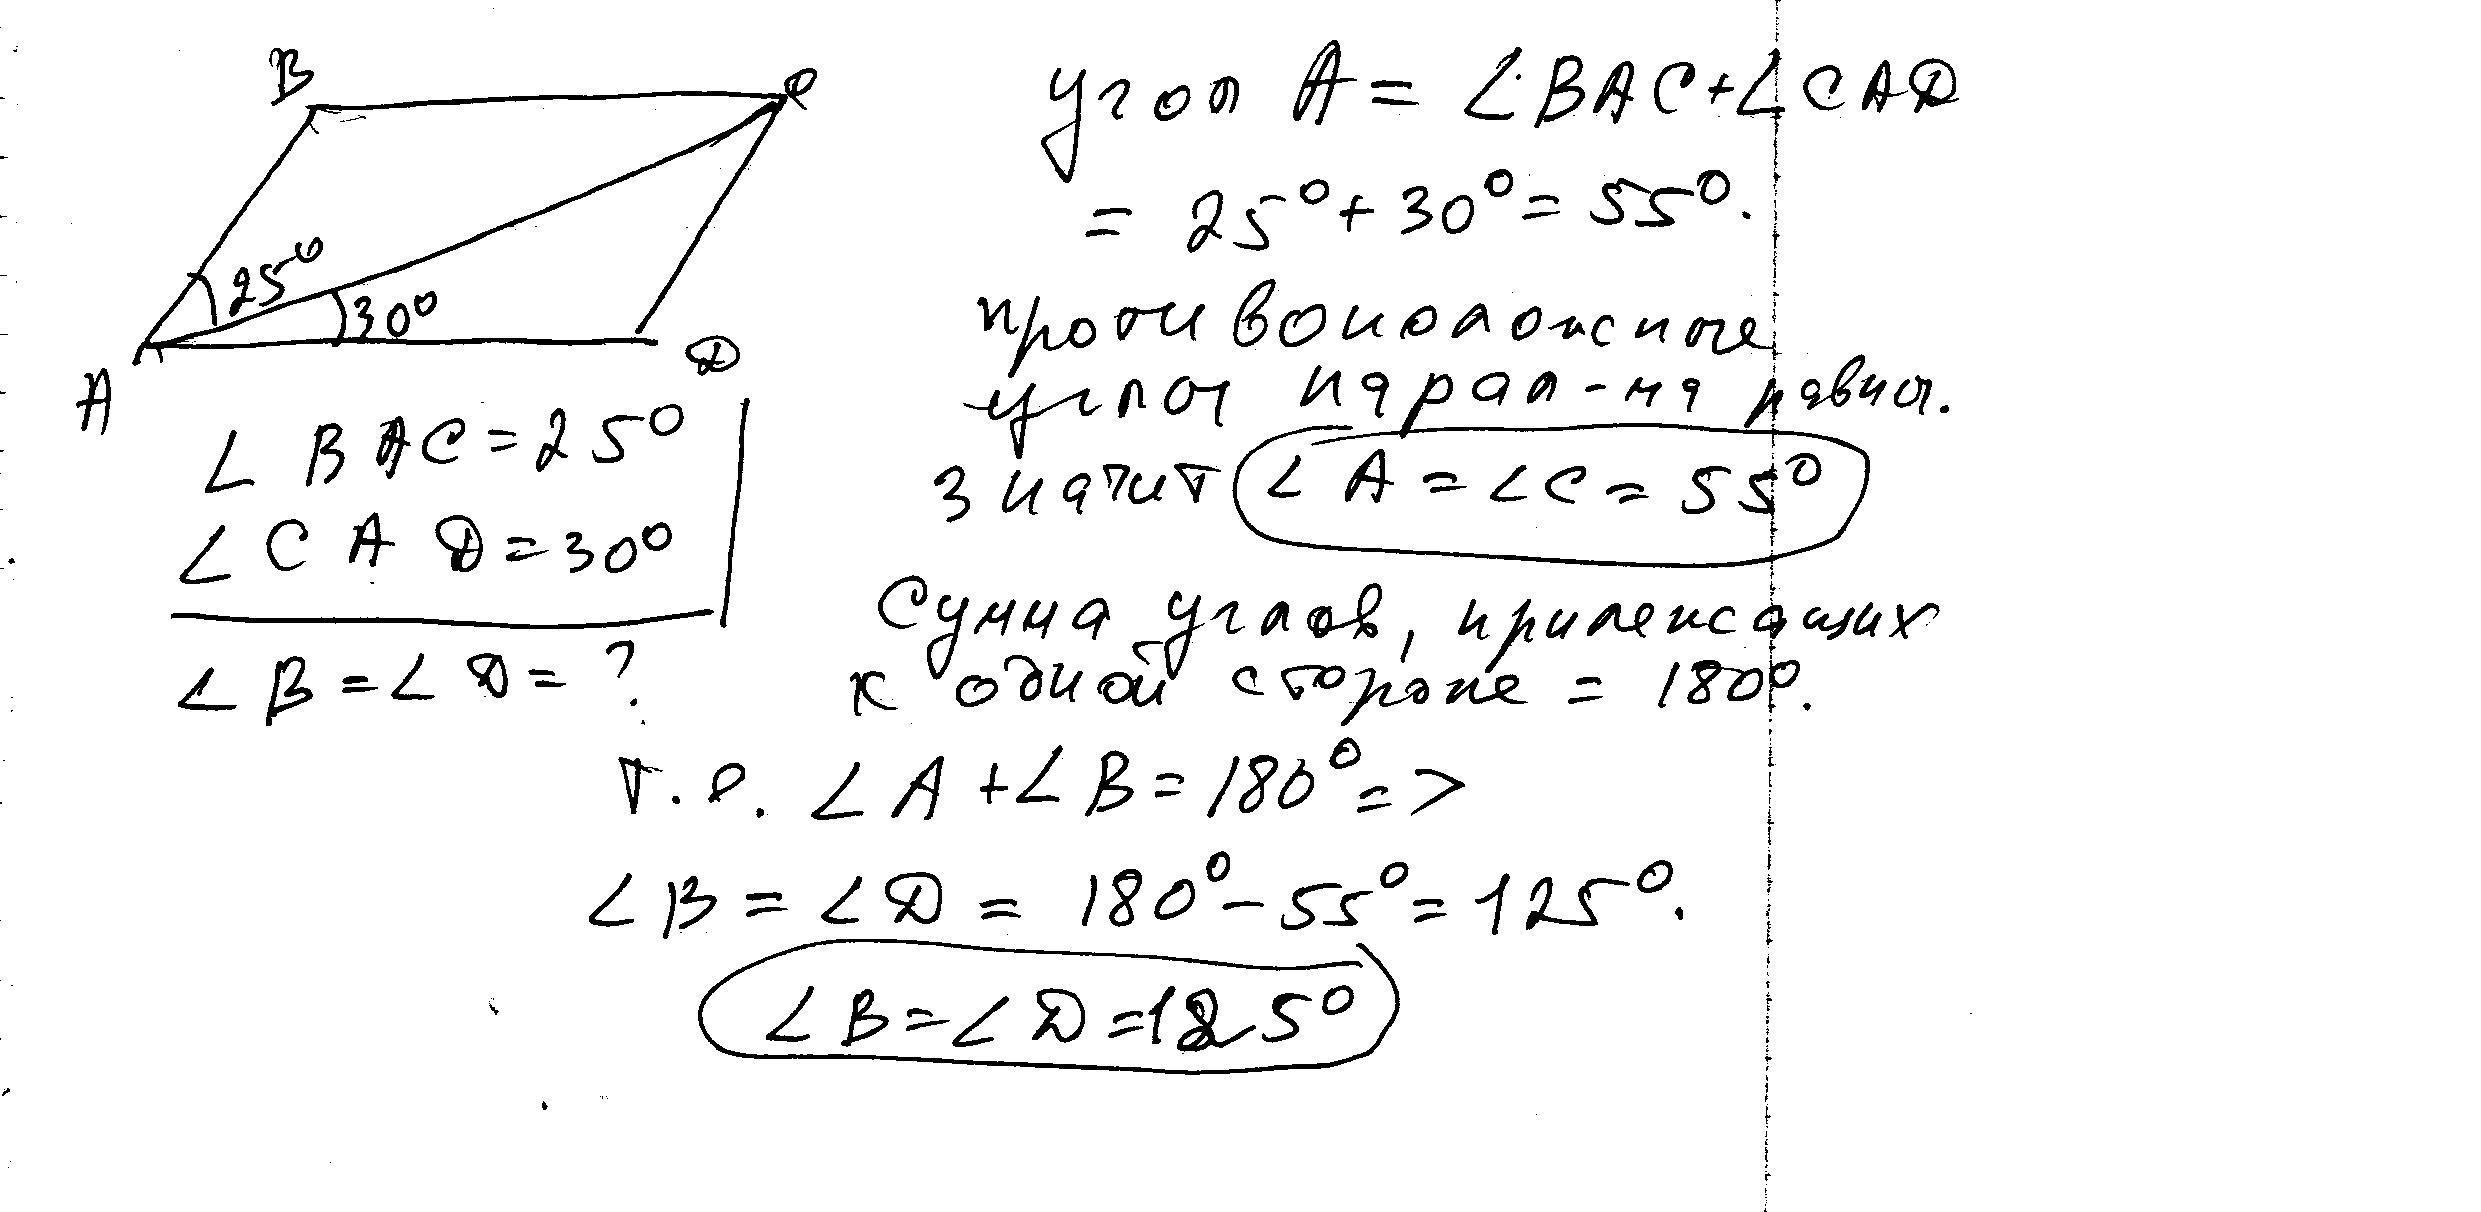 B
C
25°
30°
A
D
∠ BAC = 25°
∠ CAD = 30°
∠ B = ∠ D = ?
угол A = ∠BAC + ∠CAD
= 25° + 30° = 55°.
противоположные
углы парал-ма равны.
значит ∠ A = ∠ C = 55°
Сумма углов, прилежащих
к одной стороне = 180°.
т.е. ∠ A + ∠ B = 180° =>
∠ B = ∠ D = 180° - 55° = 125°.
∠ B = ∠ D = 125°